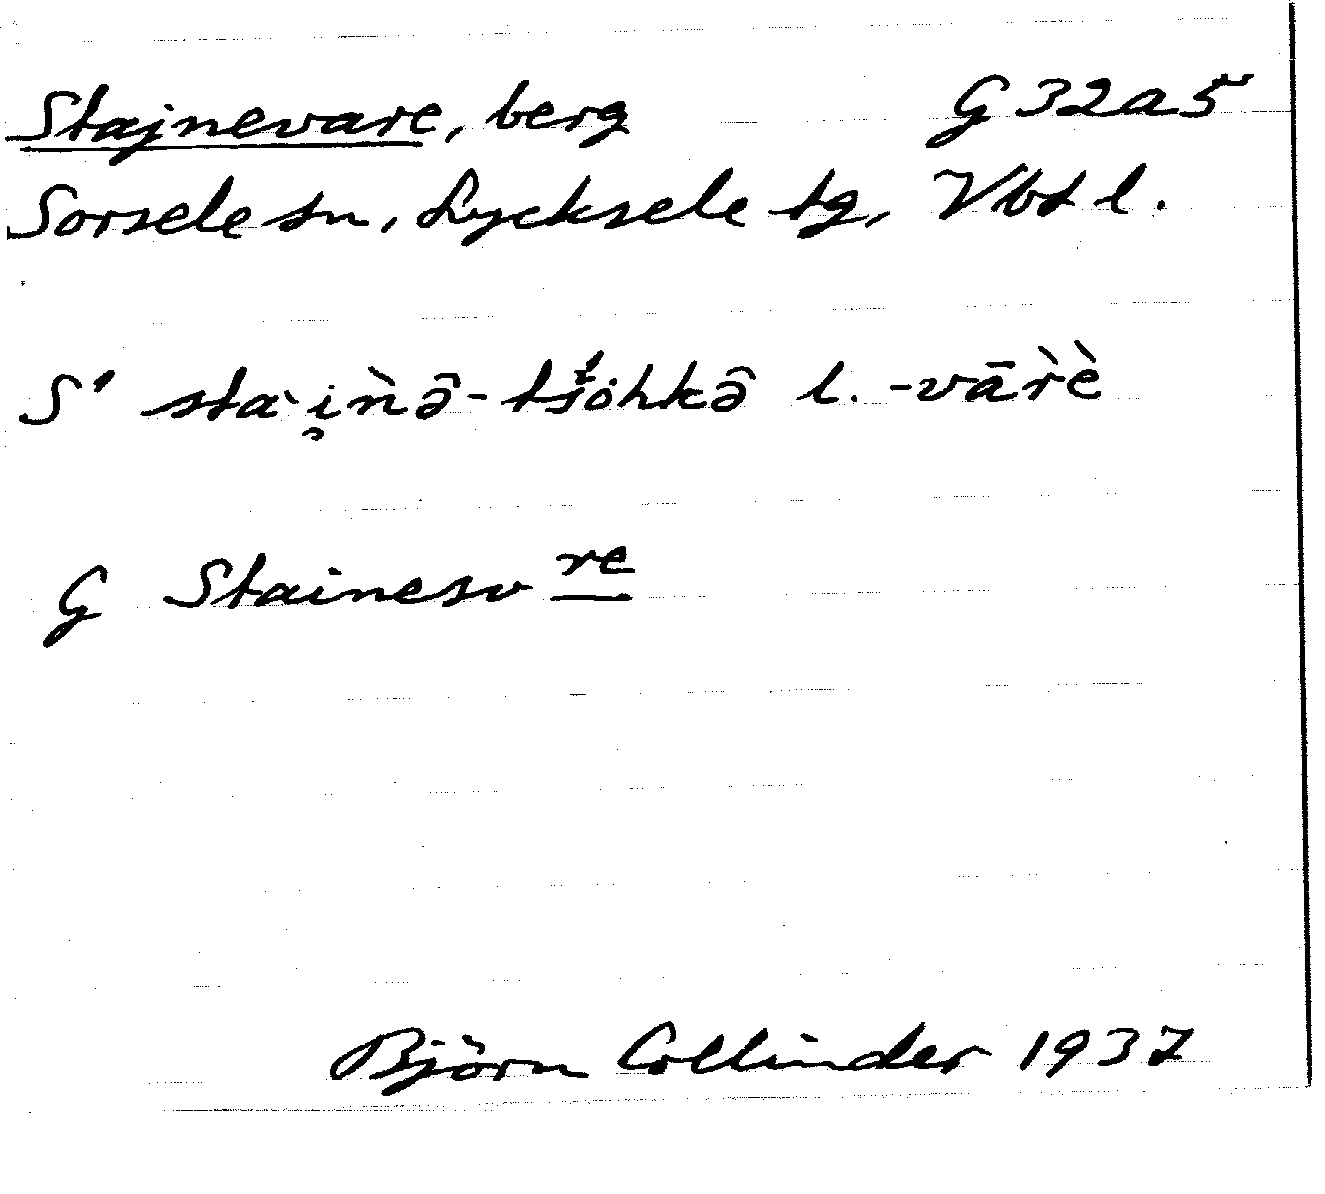 Stajnevare, berg G 32a5
Sorsele sn, Lycksele tg, Vbt l.
S' sta`i̯ǹə̂- l. -vārèˋ
G Stainesv re
Björn Collinder 1937